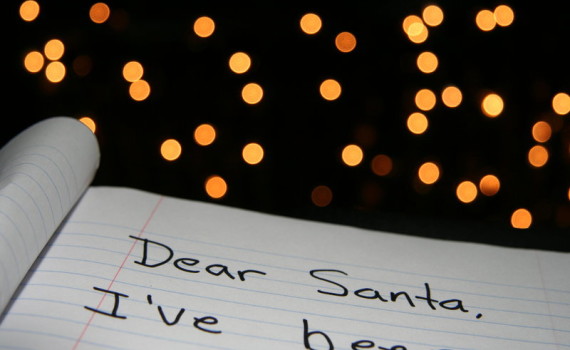 Dear Santa,
I've